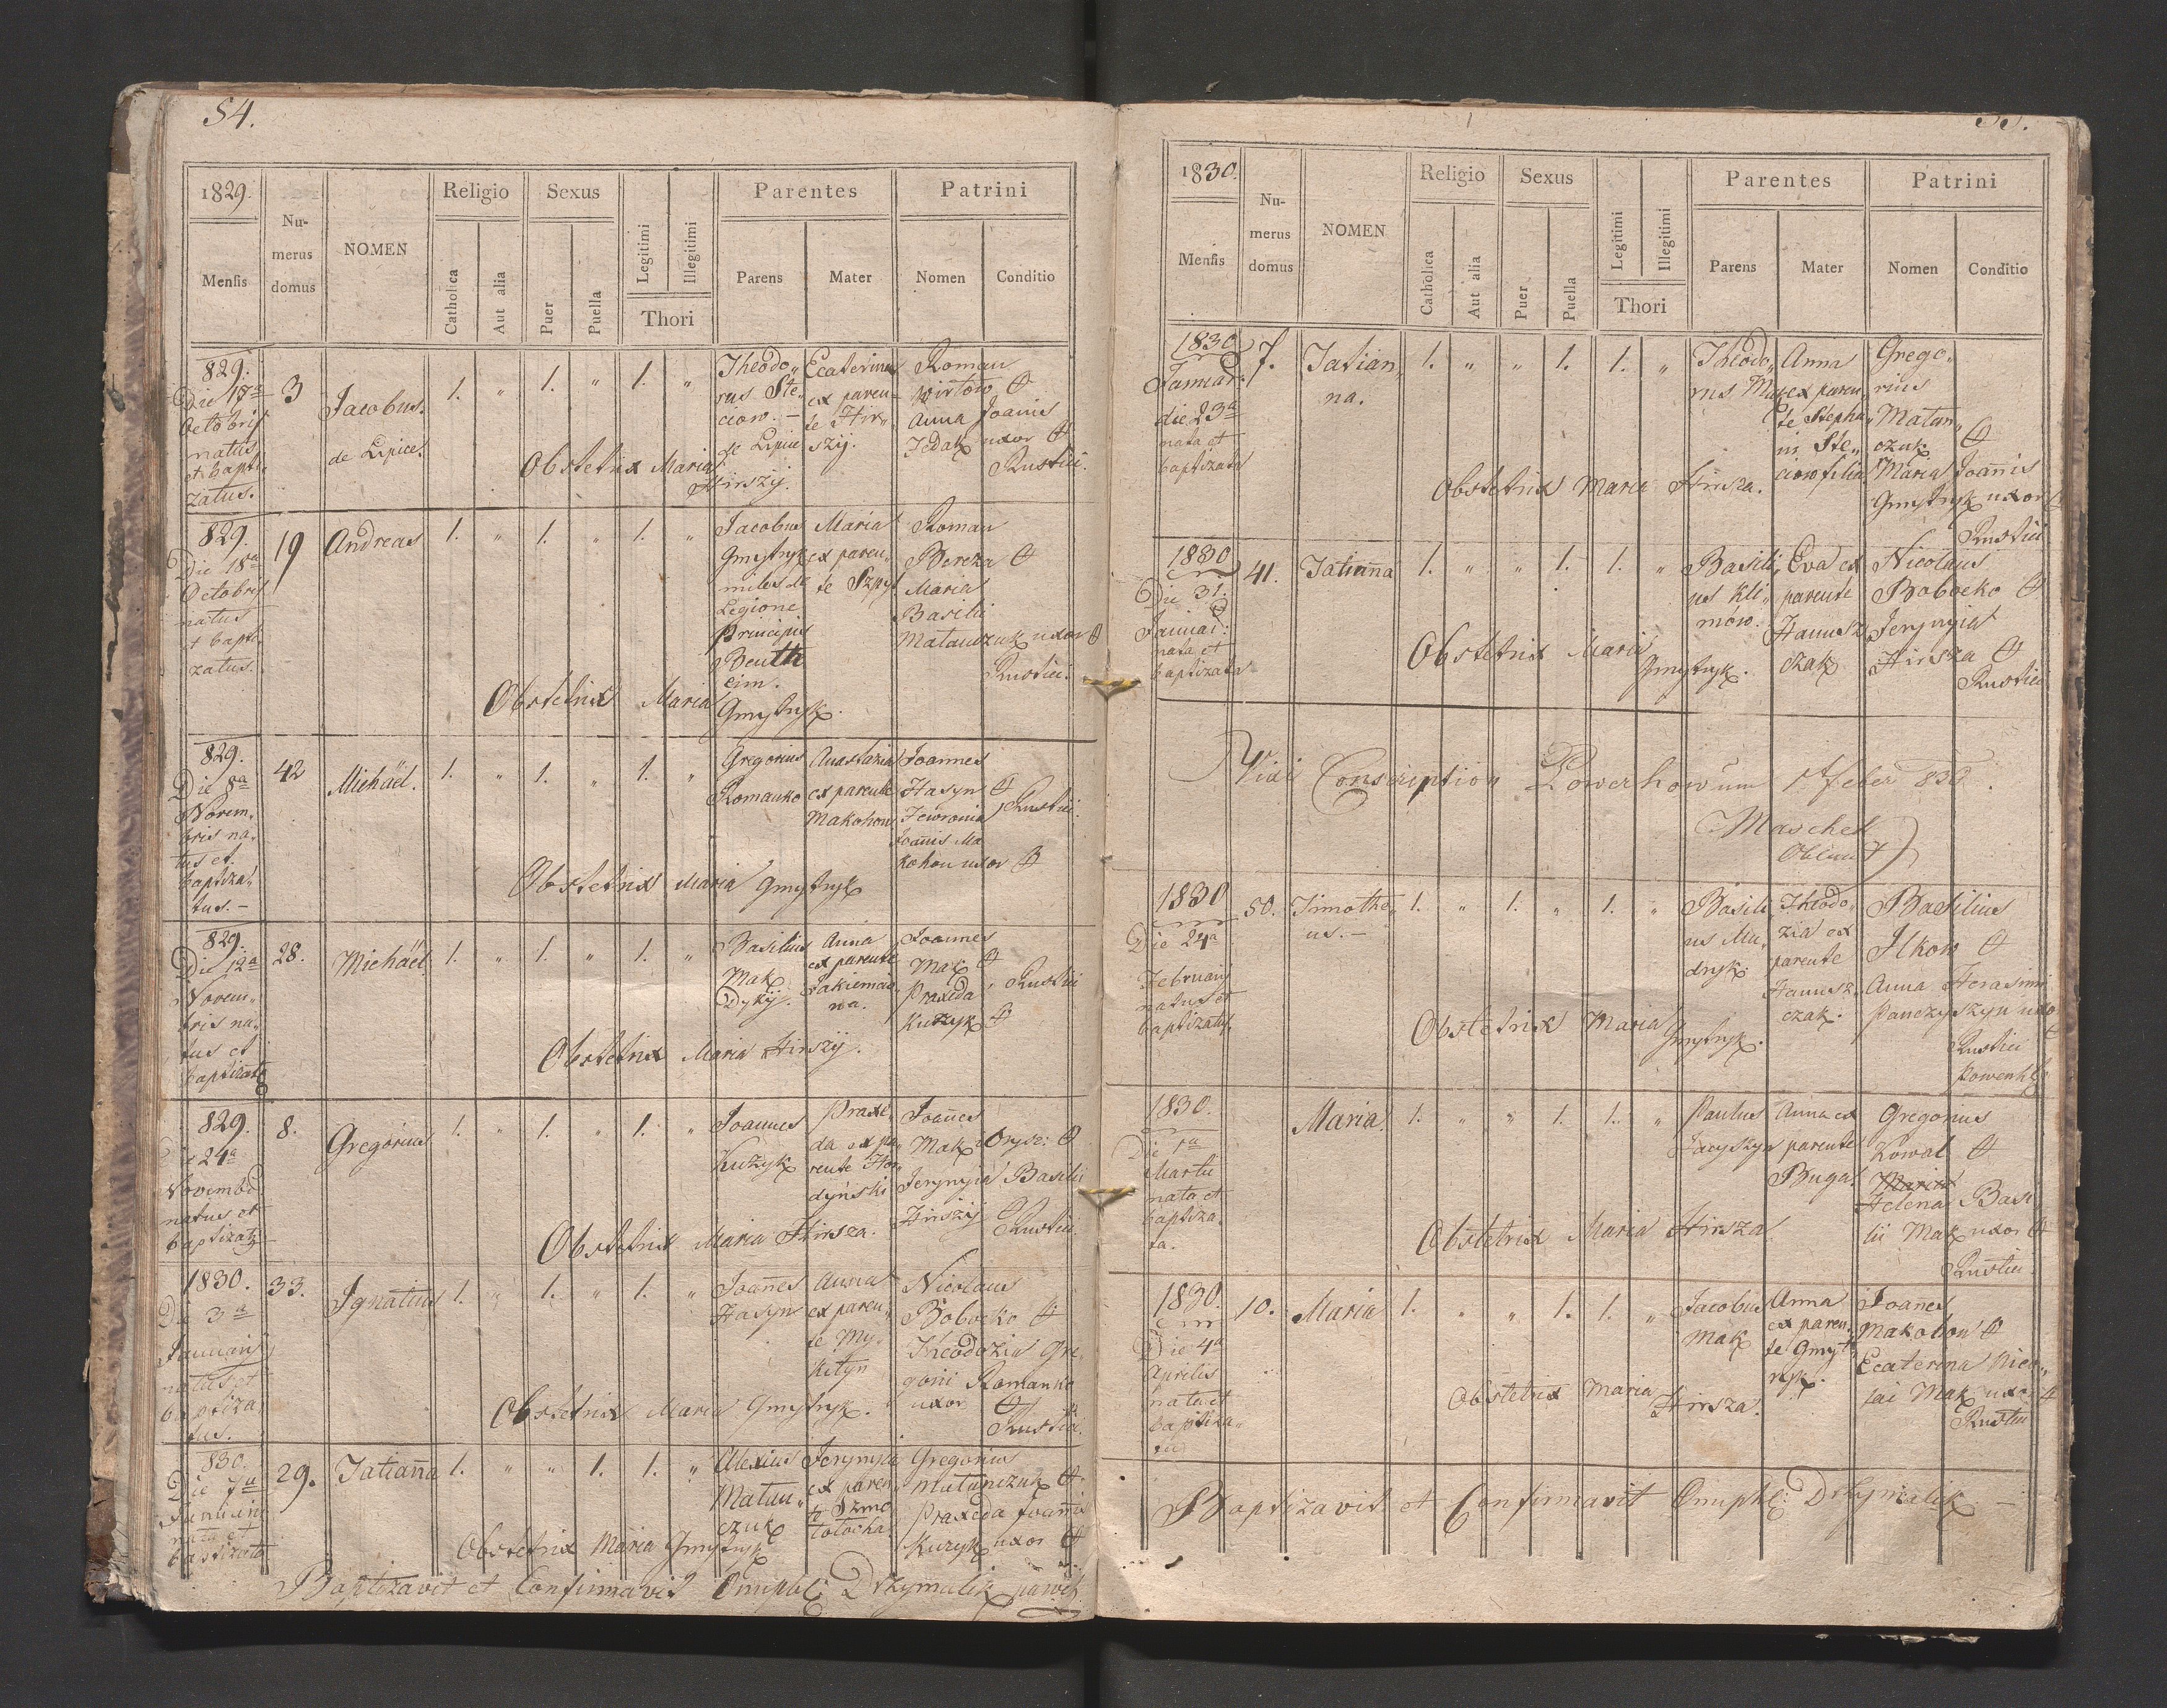 54.
1829.
Mensis
Nu-
merus
domus
NOMEN
Religio
Catholica
Aut alia
Sexus
Puer
Puella
Legitimi
Illegitimi
Thori
Parentes
Parens
Mater
Patrini
Nomen
Conditio
829.
Die 17a
Octobris
natus
et bapti
zatus.
3
Jacobus.
de Lipice.
1. " 1. " 1. "
Theodo„
rus Ste„
ciow. –
de Lipice
Ecaterina
ex paren„
te Hir„
szij.
Roman
Wirtow
Anna Joanis
Jedak uxor
Rustici.
Obstetrix Maria
Hirszij.
829.
Die 18a
Octobris
natus
et bapti
zatus.
19
Andreas
1. " 1. " 1. "
Jacobus
Gmytryk
miles de
Legione
Principis
Benth
eim.
Maria
ex paren„
te Szpyt
Roman
Bereza
Maria
Basilii
Matanczuk uxor
Rustici.
Obstetrix Maria
Gmytryk.
829.
Die 8a
Novem„
bris na„
tus et
baptiza„
tus. –
42
Michaël.
1. " 1. " 1. "
Gregorius
Romanko
Anastazia
ex parente
Makohon
Joannes
Hasyn
Jewronia
Joanis Ma
kohon uxor
Rustici.
Obstetrix Maria Gmytryk
829.
Die 12a
Novem„
bris na„
tus et
baptizatus
28.
Michaël
1. " 1. " 1. "
Basilius
Mak
Dykij.
Anna
ex parente
Jakiemio
na.
Joannes
Mak
Praxeda
Kuzyk
Rustici
Obstetrix Maria Hirszij.
829.
Die 24a
Novembr
natus et
baptizatus
8.
Gregorius
1. " 1. " 1. "
Joannes
Kuzyk
Praxe
da ex pa„
rente Hor„
dyński
Joañes
Mak Orysz:
Jerynyia Basilii
Hirszij
Rustici
Obstetrix Maria Hirsza.
1830.
Die 3a
Januarij
natus et
baptiza
tus.
33.
Ignatius
1. " 1. " 1. "
Joañes
Hasyn
Anna
ex paren„
te My„
kityn
Nicolaus
Boboeko
Theodozia Gre
gorii Romanko
uxor
Rustici.
Obstetrix Maria Gmytryk.
830.
Die 7a
Januarij
nata et
baptizata
29.
Tatiañna
1. " " 1. 1. "
Alexius
Matan„
czuk
Jerynyia
ex paren„
te Szmo
totocha
Gregorius
Matanczuk
Praxeda Joannis
Kuzyk uxor
Obstetrix Maria Gmytryk
Baptizavit et Confirmavit Onuph: Drzymalik paroch
55.
1830.
Mensis
Nu-
merus
domus
NOMEN
Religio
Catholica
Aut alia
Sexus
Puer
Puella
Legitimi
Illegitimi
Thori
Parentes
Parens
Mater
Patrini
Nomen
Conditio
1830
Januar:
die 23a
nata et
baptizata
7.
Tatian„
na.
1. " " 1. 1. "
Theodo„
rus Mak
Anna
ex paren„
te Stepha„
ni Ste„
ciow filia
Grego„
rius
Matan„
czuk
Maria Joañis
Gmytryk uxor
Rustici
Obstetrix Maria Hirsza.
1830
Die 31.
Januar:
nata et
baptizata
41.
Tatiañna
1. " " 1. 1. "
Basili„
us Kli„
mów.
Eva ex
parente
Hanusz
czak
Nicolaus
Boboeko
Jerynyia
Hirsza
Rustici
Obstetrix Maria
Gmytryk.
Vidi Conscription Powerhowum 1 feber 830.
Maschek
1830
Die 24a
Februarij
natus et
baptizatus.
50.
Timothe„
us. –
1. " 1. " 1. "
Basili
us Mu„
dryk
Theodo„
zia ex
parente
Hanusz„
czak.
Basilius
Ilkow
Anna Herasimi
Panczyszyn uxor
Rustici
Powerh
Obstetrix Maria
Gmytryk.
1830.
Die 1a
Martii
nata et
baptiza„
ta.
Maria.
1. " " 1. 1. "
Paulus
Jacyszyn
Anna ex
parente
Buga.
Gregorius
Kowal
Maria
Helena Basi
lii Mak uxor
Rustici.
Obstetrix Maria Hirsza
1830.
Die 4a
Aprilis
nata et
baptiza„
ta
10.
Maria
1. " " 1. 1. "
Jacobus
Mak
Anna
ex paren„
te Gmyt„
ryk.
Joañes
Makohon
Ecaterina Nico„
lai Mak uxor
Rustici
Obstetrix Maria
Hirsza.
Baptizavit et Confirmavit Onuph: Drzymalik –